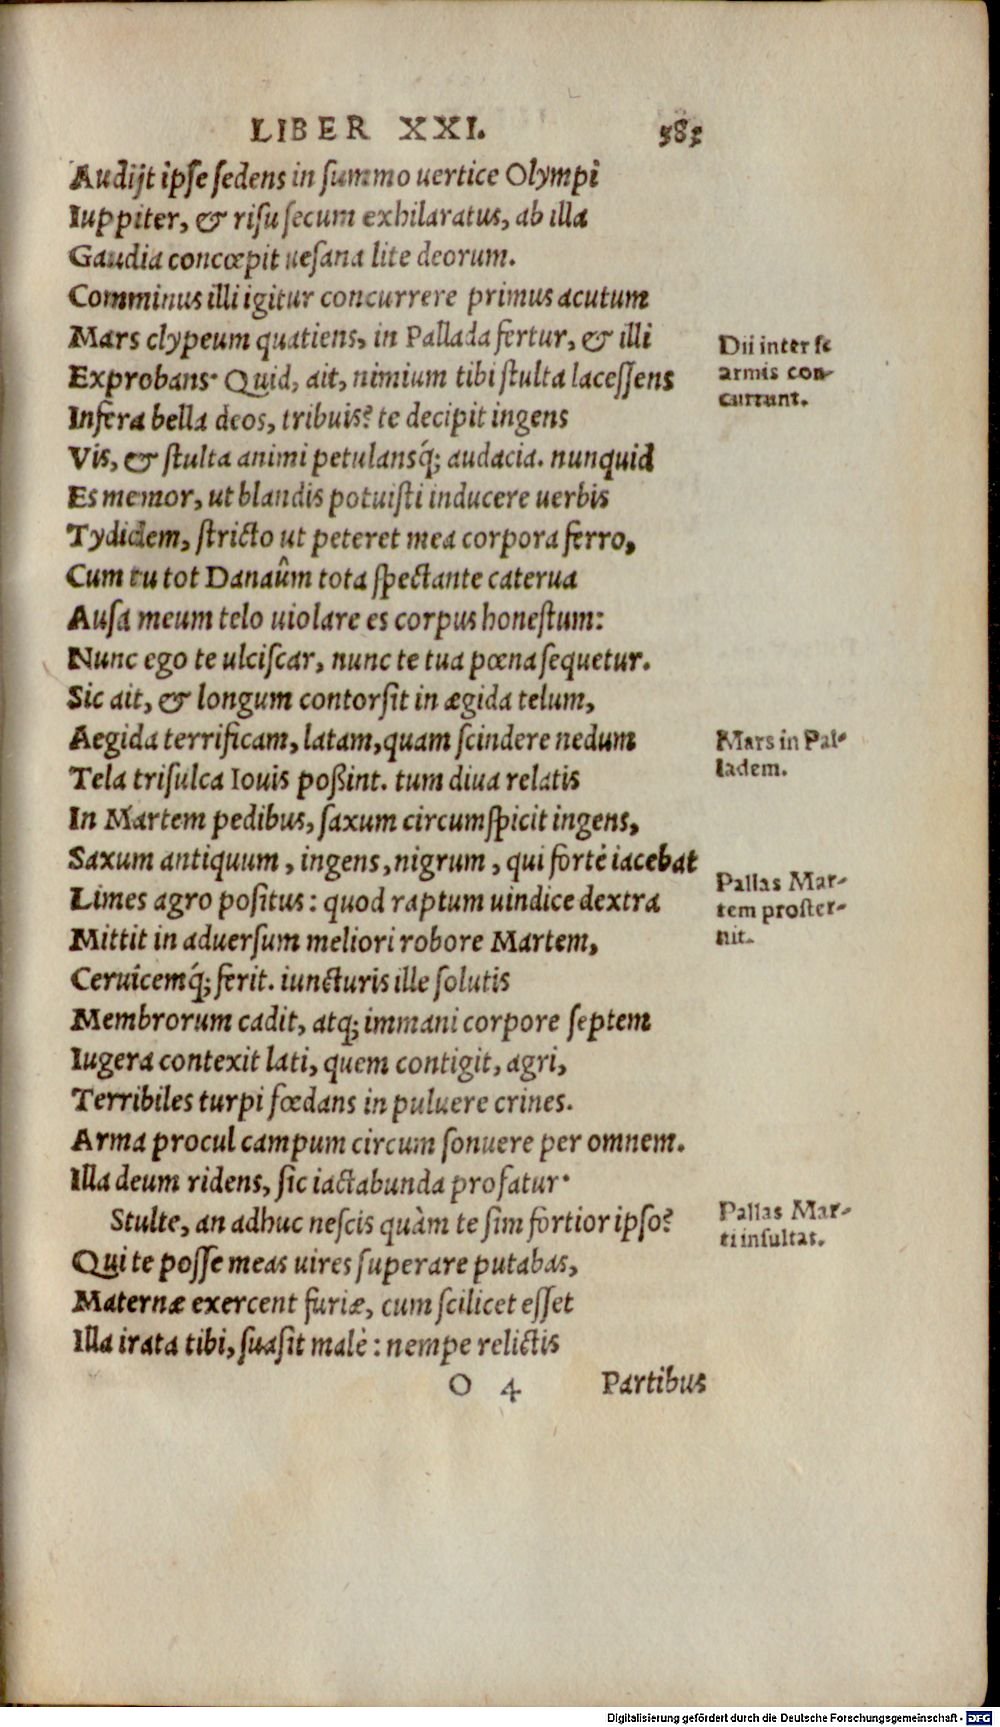 LIBER XXI. 383
Audijt ipse sedens in summo uertice Olympi
Iuppiter, & risu secum exhilaratus, ab illa
Gaudia concœpit uesana lite deorum.
Comminus illi igitur concurrere primus acutum
Mars clypeum quatiens, in Pallada fertur, & illi
Exprobans· Quid, ait, nimium tibi stulta lacessens
Infera bella deos, tribuis? te decipit ingens
Dii inter se
armis con-
currunt.
Vis, & stulta animi petulansq́; audacia. nunquid
Es memor, ut blandis potuisti inducere uerbis
Tydidem, stricto ut peteret mea corpora ferro,
Cum tu tot Danaûm tota spectante caterua
Ausa meum telo uiolare es corpus honestum:
Nunc ego te ulciscar, nunc te tua pœna sequetur.
Sic ait, & longum contorsit in ægida telum,
Aegida terrificam, latam, quam scindere nedum
Tela trisulca Iouis poßint. tum diua relatis
Mars in Pal-
ladem.
In Martem pedibus, saxum circumspicit ingens,
Saxum antiquum, ingens, nigrum, qui fortè iacebat
Limes agro positus: quod raptum uindice dextra
Mittit in aduersum meliori robore Martem,
Pallas Mar-
tem proster-
nit.
Ceruîcemq́; ferit. iuncturis ille solutis
Membrorum cadit, atq; immani corpore septem
Iugera contexit lati, quem contigit, agri,
Terribiles turpi fœdans in puluere crines.
Arma procul campum circum sonuere per omnem.
Illa deum ridens, sic iactabunda profatur·
Stulte, an adhuc nescis quàm te sim fortior ipso?
Qui te posse meas uires superare putabas,
Pallas Mar-
ti insultat.
Maternæ exercent furiæ, cum scilicet esset
Illa irata tibi, suasit malè: nempe relictis
O 4 Partibus
Digitalisierung gefördert durch die Deutsche Forschungsgemeinschaft - DFG